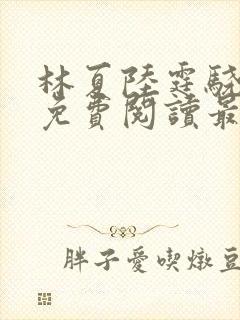 林夏陸霆驍
免費閱讀最
胖子愛喫燉豆